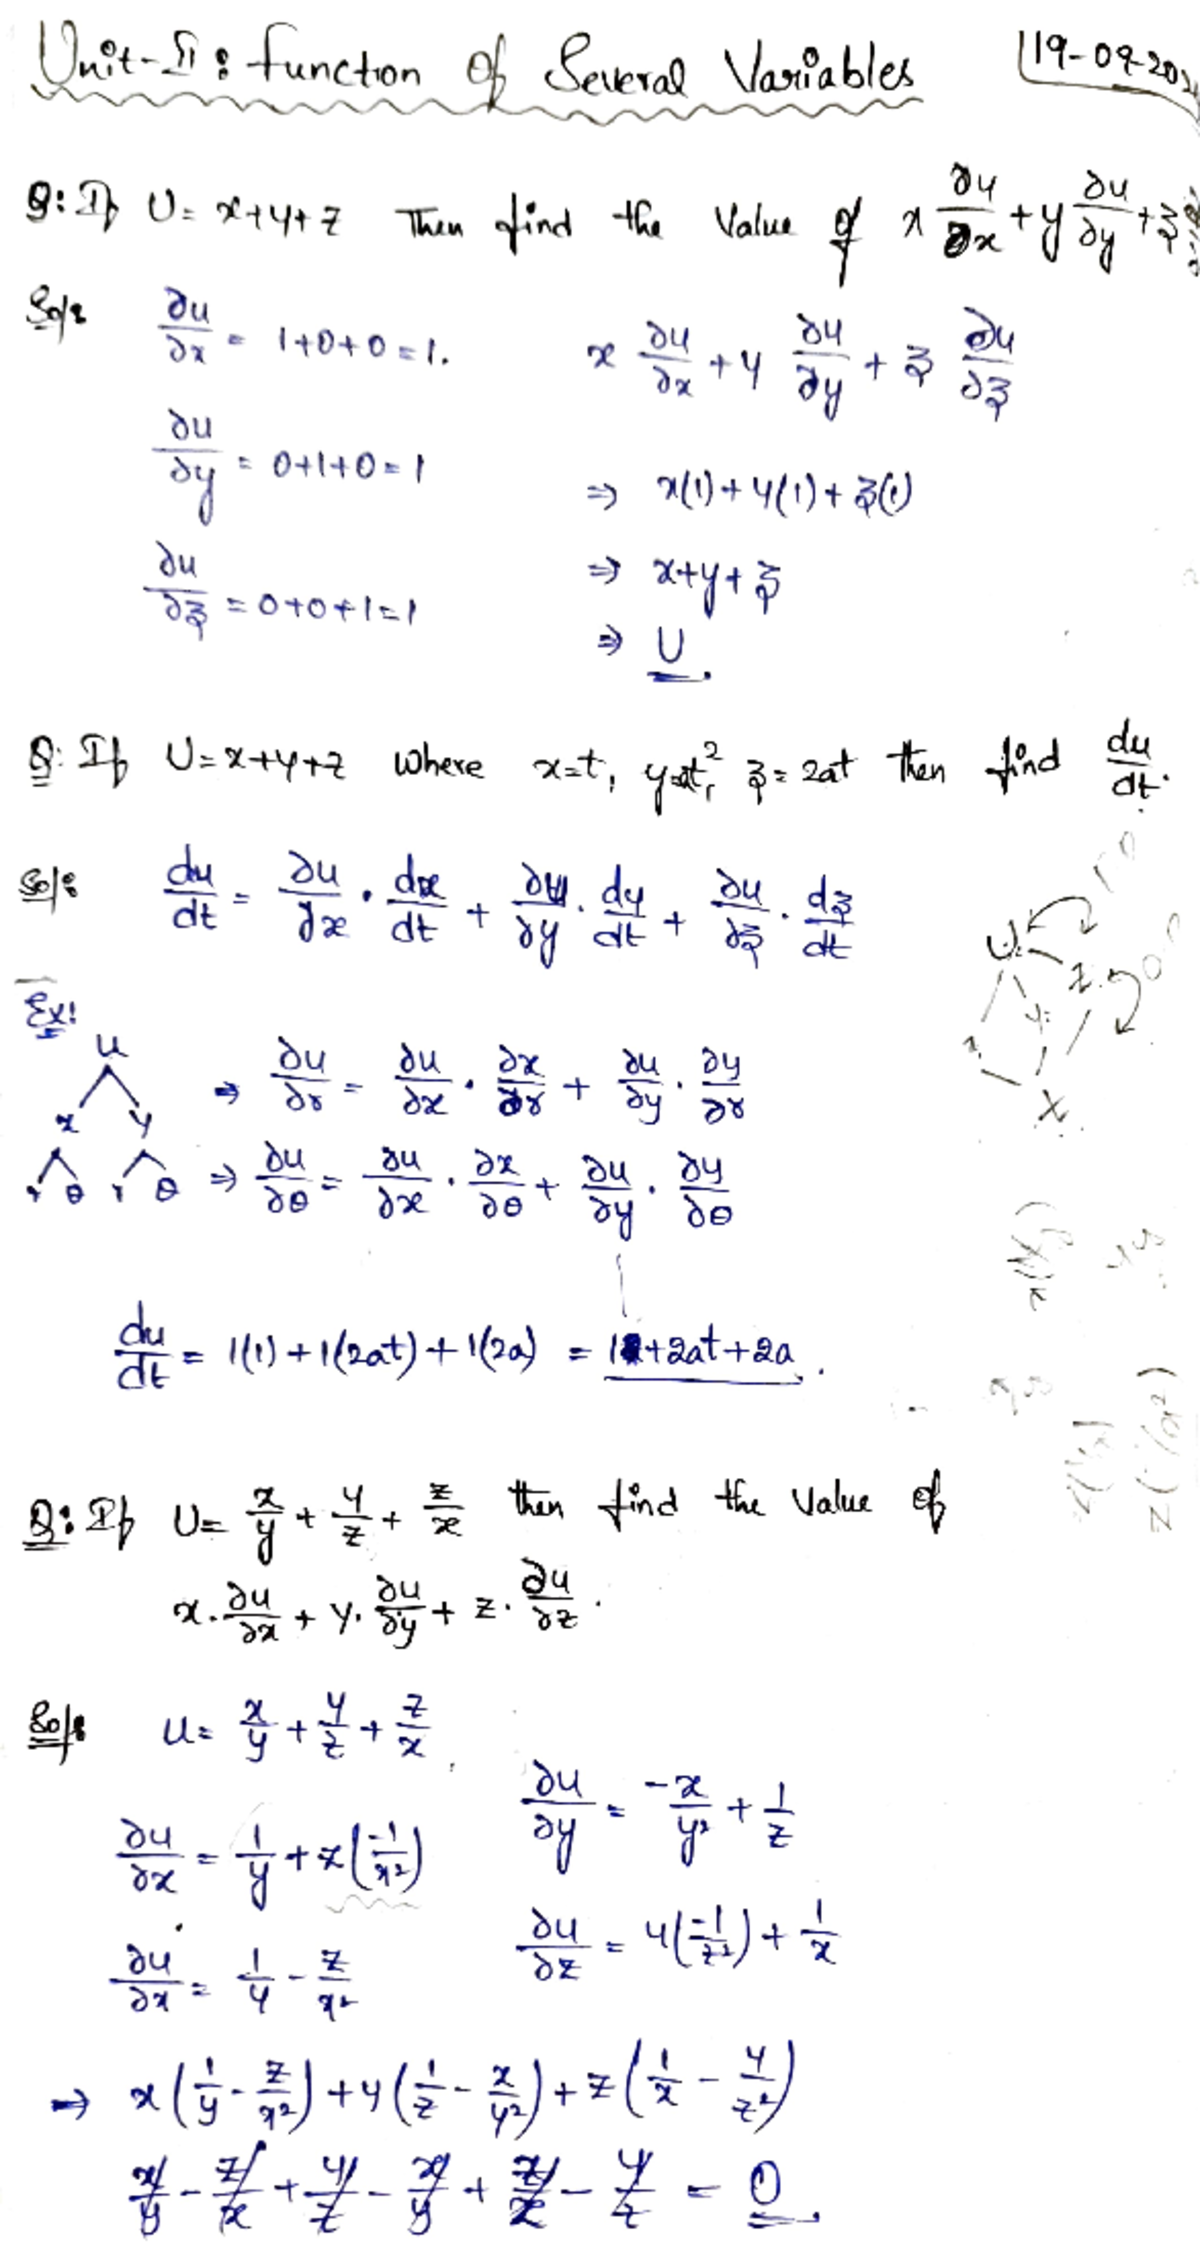 Unit-II: Function Of Several Variables
19-09-202
Q: If U = x+y+z Then find the value of x ∂u/∂x + y ∂u/∂y + z
Sol:
∂u/∂x = 1+0+0 = 1.
∂u/∂y = 0+1+0 = 1
∂u/∂z = 0+0+1 = 1
x ∂u/∂x + y ∂u/∂y + z ∂u/∂z
⇒ x(1) + y(1) + z(1)
⇒ x+y+z
⇒ U.
Q: If U = x+y+z where x=t, y=at², z = 2at then find du/dt.
Sol: du/dt = ∂u/∂x · dx/dt + ∂u/∂y · dy/dt + ∂u/∂z · dz/dt
Ex:
u
x y
r θ r θ
⇒ ∂u/∂r = ∂u/∂x · ∂x/∂r + ∂u/∂y · ∂y/∂r
⇒ ∂u/∂θ = ∂u/∂x · ∂x/∂θ + ∂u/∂y · ∂y/∂θ
du/dt = 1(1) + 1(2at) + 1(2a) = 1+2at+2a.
Q: If U = x/y + y/z + z/x then find the value of
x · ∂u/∂x + y · ∂u/∂y + z · ∂u/∂z.
Sol: u = x/y + y/z + z/x
∂u/∂x = 1/y + z(-1/x²)
∂u/∂x = 1/y - z/x²
∂u/∂y = -x/y² + 1/z
∂u/∂z = y(-1/z²) + 1/x
⇒ x(1/y - z/x²) + y(1/z - x/y²) + z(1/x - y/z²)
x/y - z/x + y/z - x/y + z/x - y/z = 0.